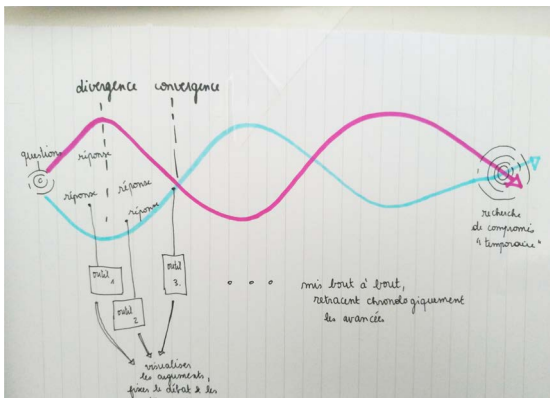 divergence
convergence
question
réponse
réponse
réponse
réponse
outil
1
outil
2
outil
3.
mis bout à bout,
retracent chronologiquement
les avancées
recherche
de compromis
"temporaire"
visualiser
les arguments,
fixer le débat & les